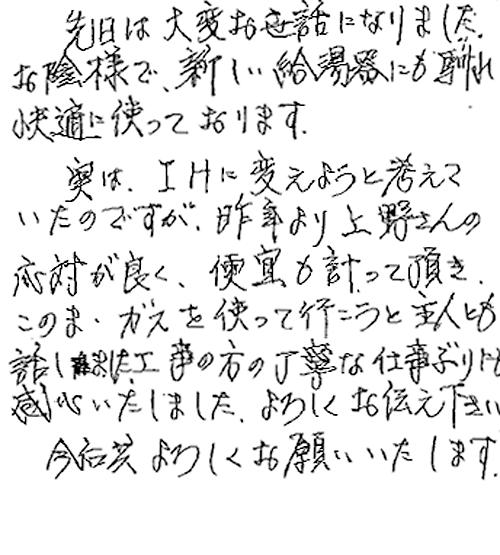 先日は大変お世話になりました。
お陰様で、新しい給湯器にも馴れ
快適に使っております。
実は、IHに変えようと考えて
いたのですが、昨年より上野さんの
応対が良く、便宜も計って頂き、
このまゝガスを使って行こうと主人とも
話しました。工事の方の丁寧な仕事ぶりにも
感心いたしました。よろしくお伝え下さい
今后共よろしくお願いいたします。